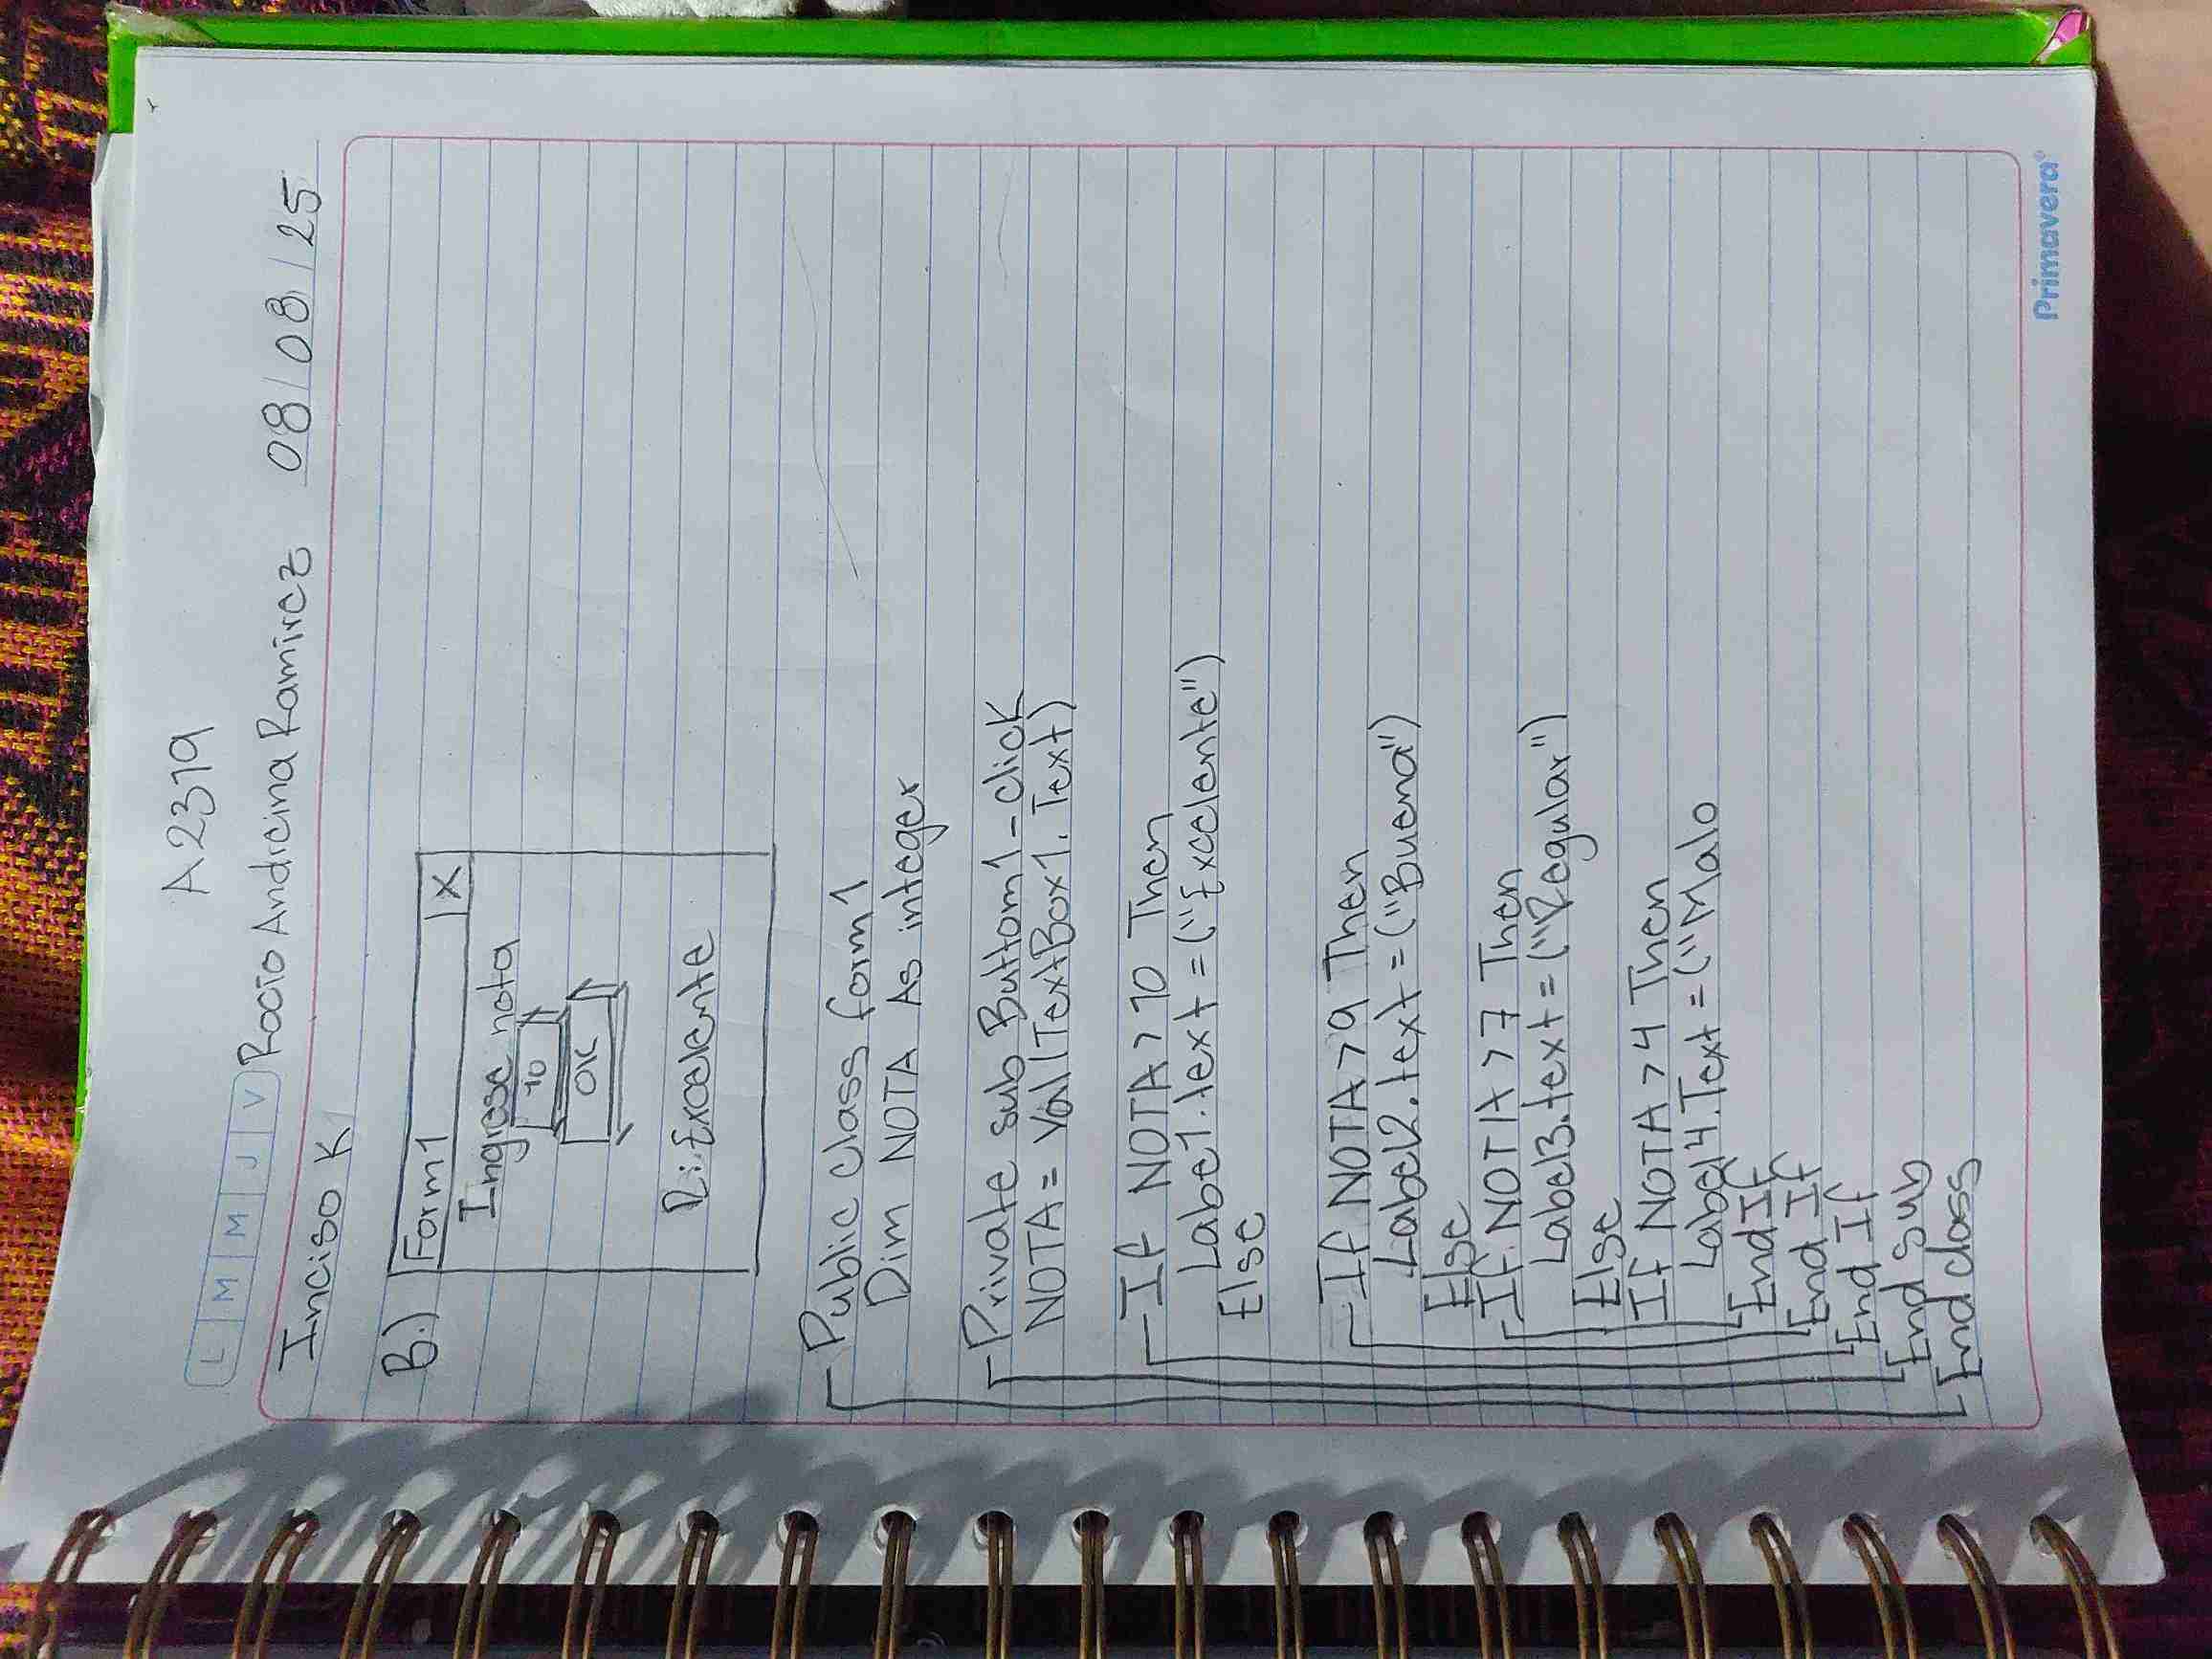 A2319
L M M J V Rocio Andreina Ramirez 08/08/25
Inciso K
B.) Form1 X
Ingrese nota
10
OK
R: Excelente
Public Class form1
Dim NOTA As integer
Private sub Buttom1-click
NOTA = Val(TextBox1.Text)
If NOTA > 10 Then
Label1.text = ("Excelente")
Else
If NOTA > 9 Then
Label2.text = ("Buena")
Else
If NOTA > 7 Then
Label3.text = ("Regular")
Else
If NOTA > 4 Then
Label4.Text = ("Malo
End If
End If
End If
End sub
End class
Primavera